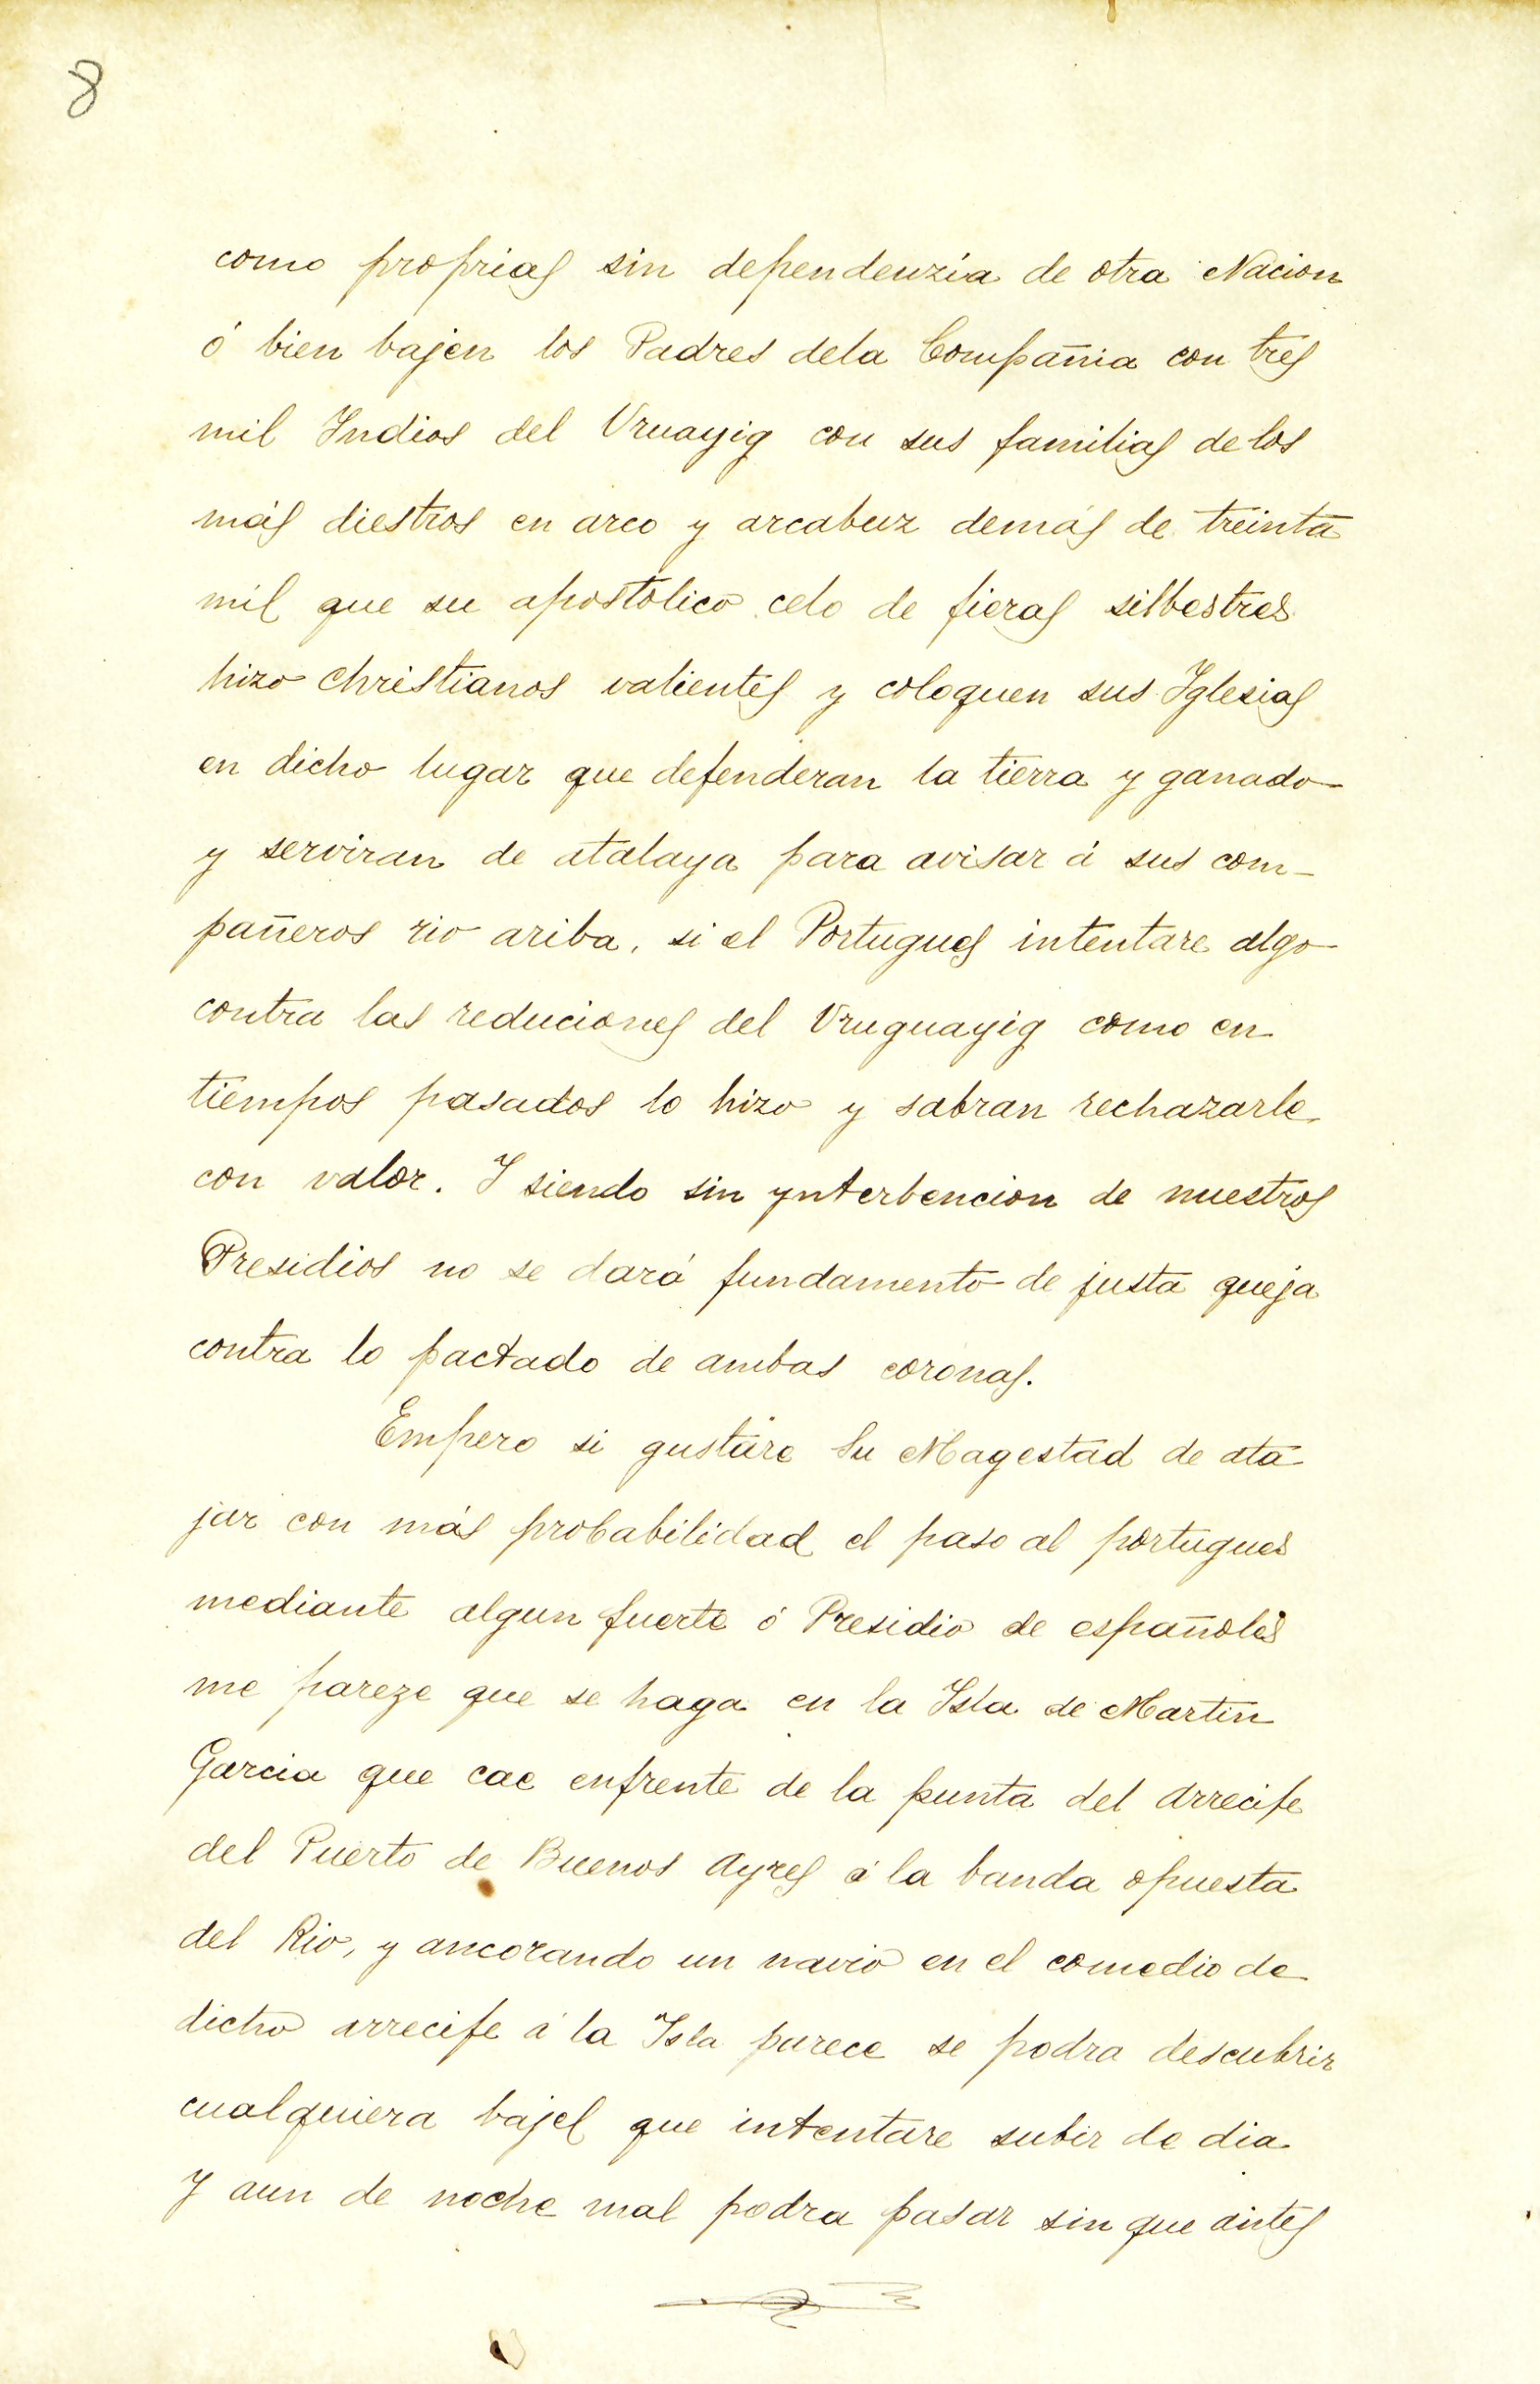 8
como proprias sin dependenzia de otra Nacion
ó bien bajen los Padres dela Compañia con tres
mil Indios del Vruayig con sus familias de los
más diestros en arco y arcabuz demás de treinta
mil que su apostolico celo de fieras silbestres
hizo christianos valientes y coloquen sus Iglesias
en dicho lugar que defenderan la tierra y ganado
y serviran de atalaya para avisar á sus com-
pañeros rio ariba, si el Portugues intentare algo
contra las reduciones del Vruguayig como en
tiempos pasados lo hizo y sabran rechazarle
con valor. I siendo sin ynterbencion de nuestros
Presidios no se dará fundamento de justa queja
contra lo pactado de ambas coronas.
Empero si gustáre Su Magestad de ata
jar con más probabilidad el paso al portugues
mediante algun fuerte ó Presidio de españoles
me pareze que se haga en la Isla de Martin
Garcia que cae enfrente de la punta del arrecife
del Puerto de Buenos Ayres á la banda opuesta
del Rio, y ancorando un navio en el comedio de
dicho arrecife á la Isla parece se podra descubrir
cualquiera bajel que intentare subir de dia
Y aun de noche mal podra pasar sin que antes